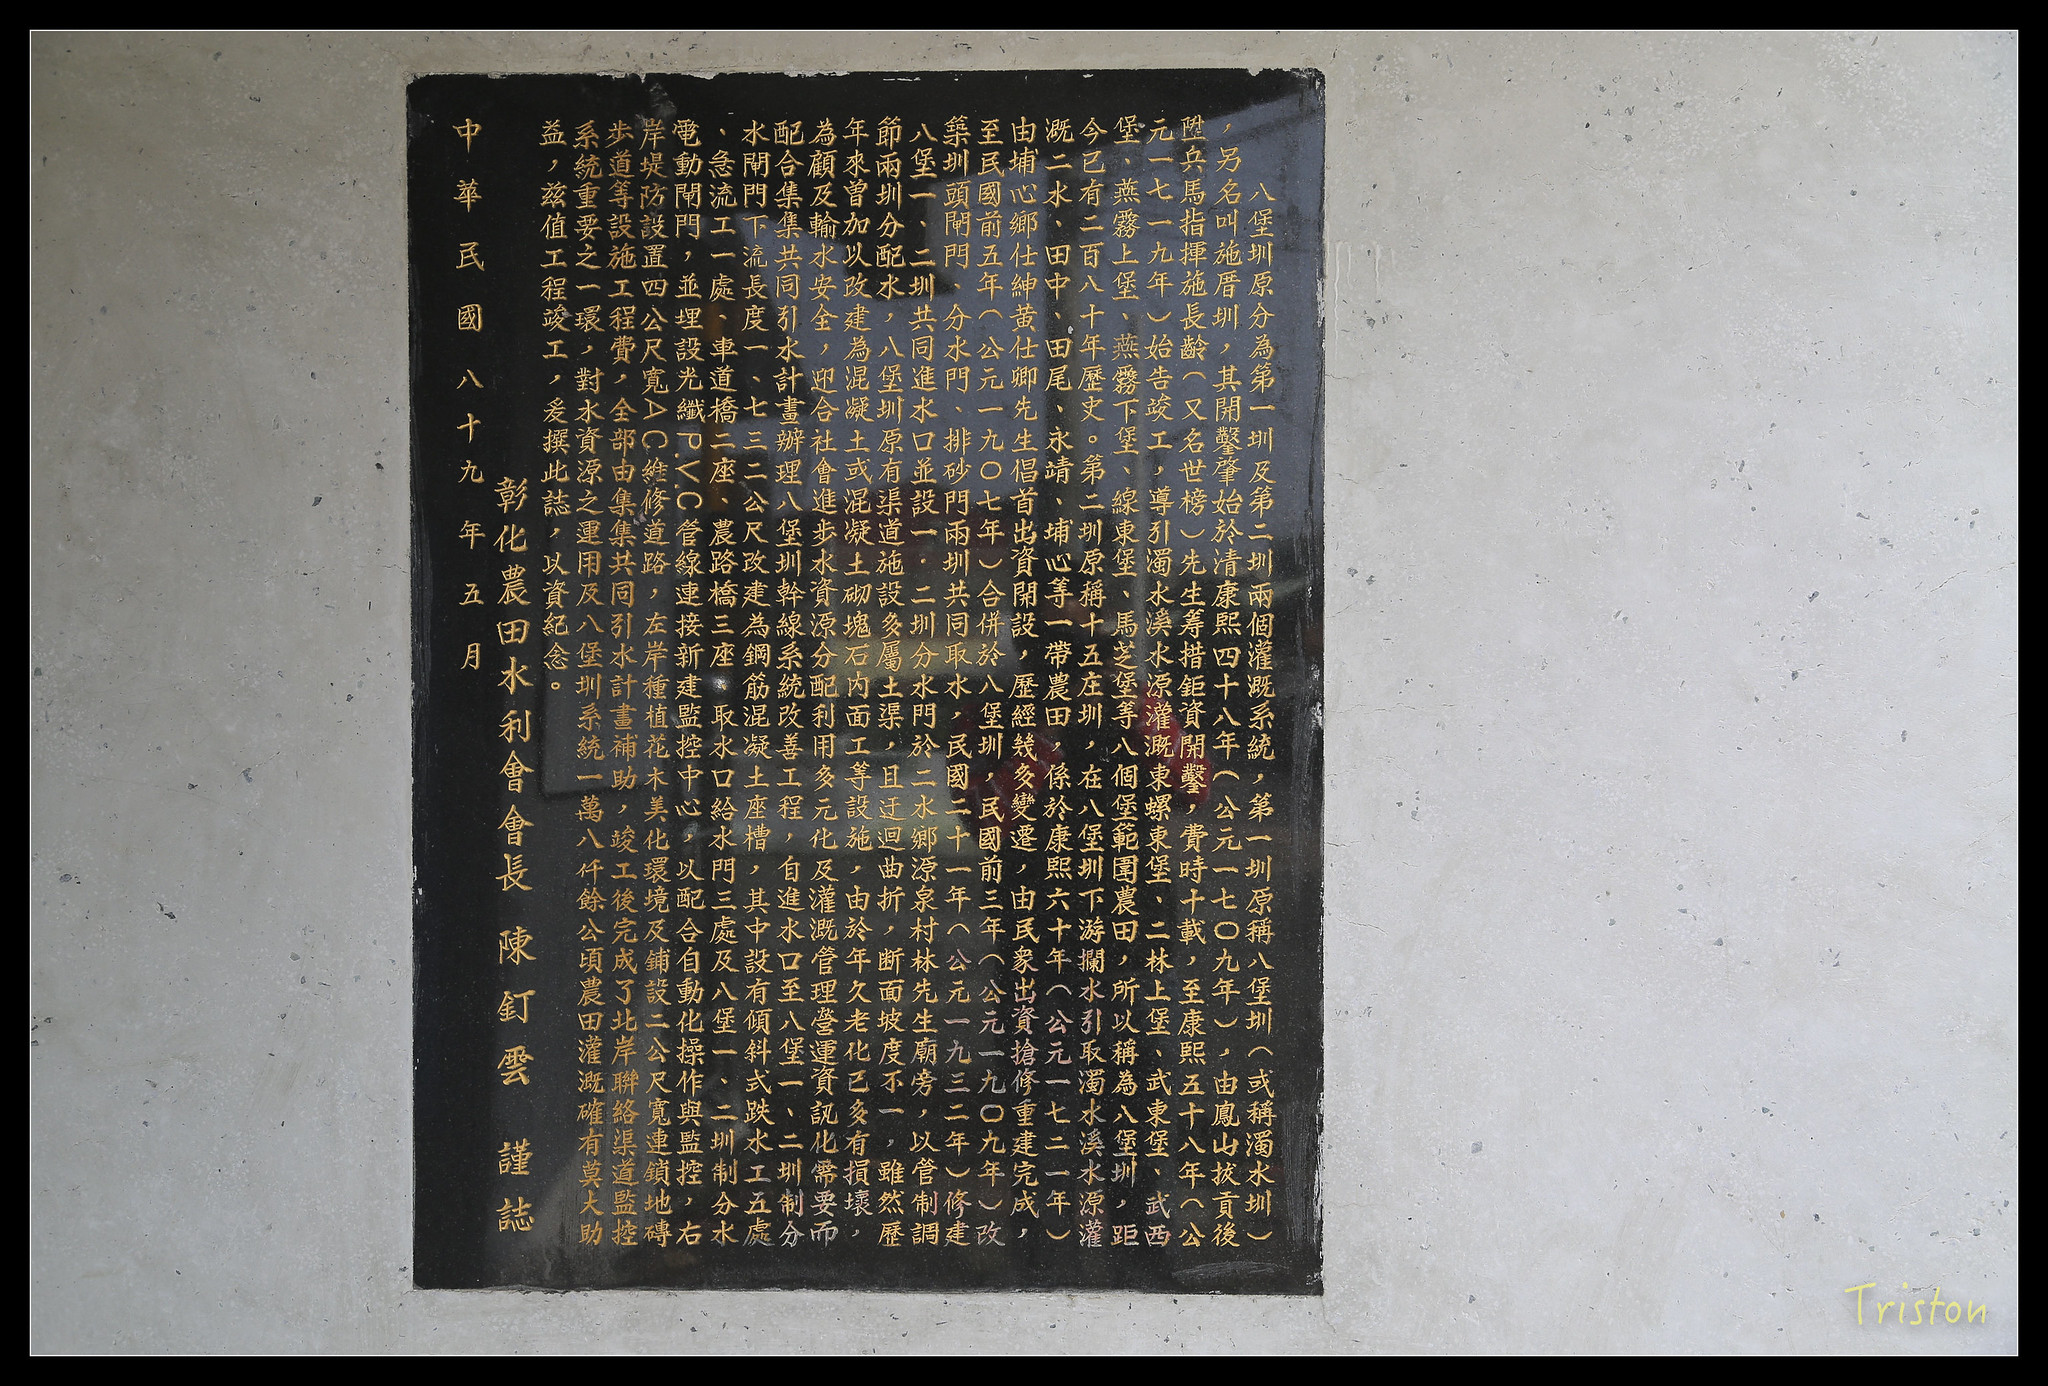 八堡圳原分為第一圳及第二圳兩個灌溉系統，第一圳原稱八堡圳（或稱濁水圳）
，另名叫施厝圳，其開鑿肇始於清康熙四十八年（公元一七〇九年），由鳳山拔貢後
陞兵馬指揮施長齡（又名世榜）先生籌措鉅資開鑿，費時十載，至康熙五十八年（公
元一七一九年）始告竣工，導引濁水溪水源灌溉東螺東堡、二林上堡、武東堡、武西
堡、燕霧上堡、燕霧下堡、線東堡、馬芝堡等八個堡範圍農田，所以稱為八堡圳，距
今已有二百八十年歷史。第二圳原稱十五庄圳，在八堡圳下游攔水引取濁水溪水源灌
溉二水、田中、田尾、永靖、埔心等一帶農田，係於康熙六十年（公元一七二一年）
由埔心鄉仕紳黃仕卿先生倡首出資開設，歷經幾多變遷，由民衆出資搶修重建完成，
至民國前五年（公元一九〇七年）合併於八堡圳，民國前三年（公元一九〇九年）改
築圳頭閘門、分水門、排砂門兩圳共同取水，民國二十一年（公元一九三二年）修建
八堡一、二圳共同進水口並設一．二圳分水門於二水鄉源泉村林先生廟旁，以管制調
節兩圳分配水，八堡圳原有渠道施設多屬土渠，且迂迴曲折，断面坡度不一，雖然歷
年來曾加以改建為混凝土或混凝土砌塊石內面工等設施，由於年久老化已多有損壞，
為顧及輸水安全，迎合社會進步水資源分配利用多元化及灌溉管理營運資訊化需要而
配合集集共同引水計畫辦理八堡圳幹線系統改善工程，自進水口至八堡一、二圳制分
水閘門下流長度一、七三二公尺改建為鋼筋混凝土座槽，其中設有傾斜式跌水工五處
、急流工一處、車道橋二座、農路橋三座、取水口給水門三處及八堡一、二圳制分水
電動閘門，並埋設光纖P.V.C管線連接新建監控中心，以配合自動化操作與監控，右
岸堤防設置四公尺寬AC維修道路，左岸種植花木美化環境及鋪設二公尺寬連鎖地磚
步道等設施工程費，全部由集集共同引水計畫補助，竣工後完成了北岸聯絡渠道監控
系統重要之一環，對水資源之運用及八堡圳系統一萬八仟餘公頃農田灌溉確有莫大助
益，茲值工程竣工，爰撰此誌，以資紀念。
彰化農田水利會會長 陳釘雲 謹誌
中華民國八十九年五月
Triston